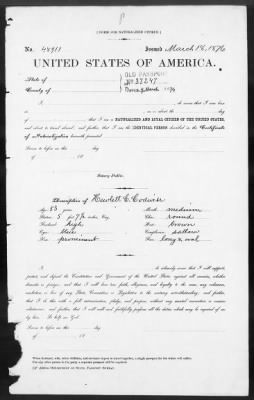 [FORM FOR NATURALIZED CITIZEN.]
No. 44911 Issued March 18, 1876
UNITED STATES OF AMERICA.
State of
OLD PASSPORT
County of
do swear that I was born
in on or about the day
of that I am a NATURALIZED AND LOYAL CITIZEN OF THE UNITED STATES,
and about to travel abroad; and further, that I am the IDENTICAL PERSON described in the Certificate
of Naturalization herewith presented.
Sworn to before me this day
of 18
Notary Public.
Description of Hewlett
Age: 53 years Mouth: medium
Stature: 5 feet inches, Eng. Chin: round
Forehead: high Hair: brown
Eyes: blue Complexion: sallow
Nose: prominent Face: long & oval
I, do solemnly swear that I will support,
protect, and defend the Constitution and Government of the United States against all enemies, whether
domestic or foreign; and that I will bear true faith, allegiance, and loyalty to the same, any ordinance,
resolution, or law of any State, Convention, or Legislature to the contrary notwithstanding; and further,
that I do this with a full determination, pledge, and purpose, without any mental reservation or evasion
whatsoever; and further, that I will well and faithfully perform all the duties which may be required of me
by law. So help me God.
Sworn to before me this day
of 18